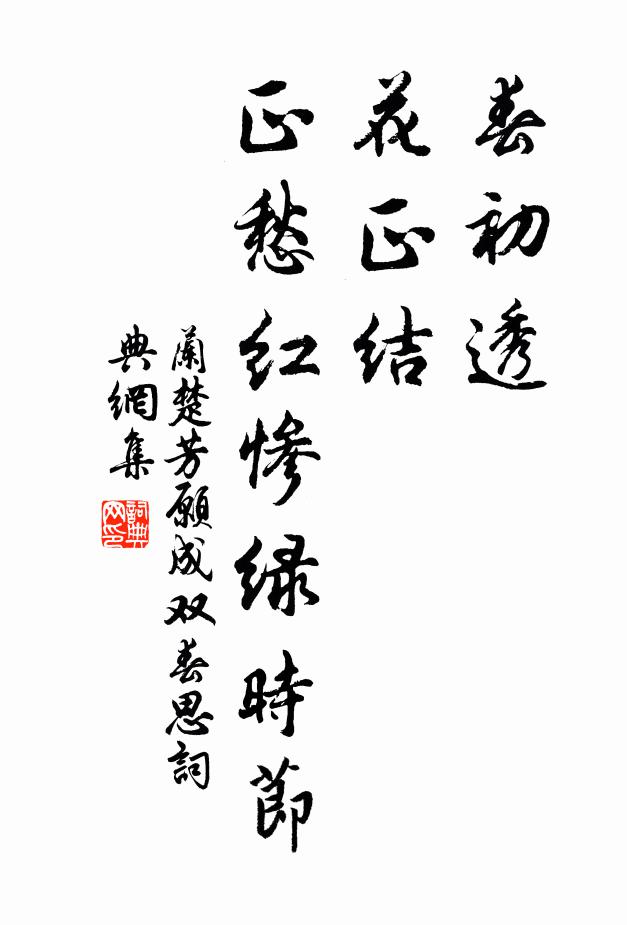 春初透
花正结
正愁红惨绿時節
蘭楚芳願成双春思詞
典網集
詞典網印